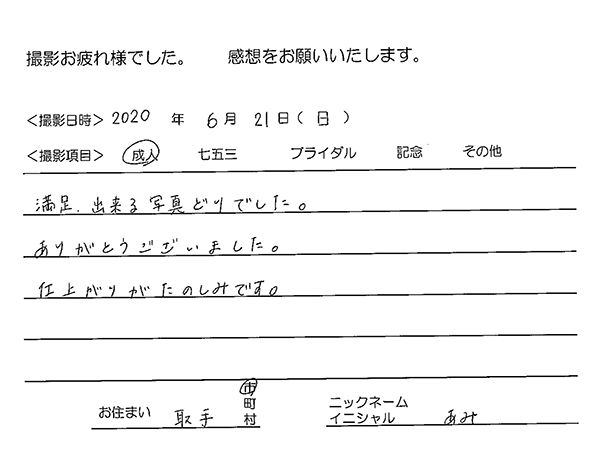 撮影お疲れ様でした。 感想をお願いいたします。
＜撮影日時＞ 2020 年 6月 21日（日）
＜撮影項目＞ 成人 七五三 ブライダル 記念 その他
満足.出来る写真どりでした。
ありがとうございました。
仕上がりがたのしみです。
お住まい 取手 市 町 村
ニックネーム
イニシャル あみ